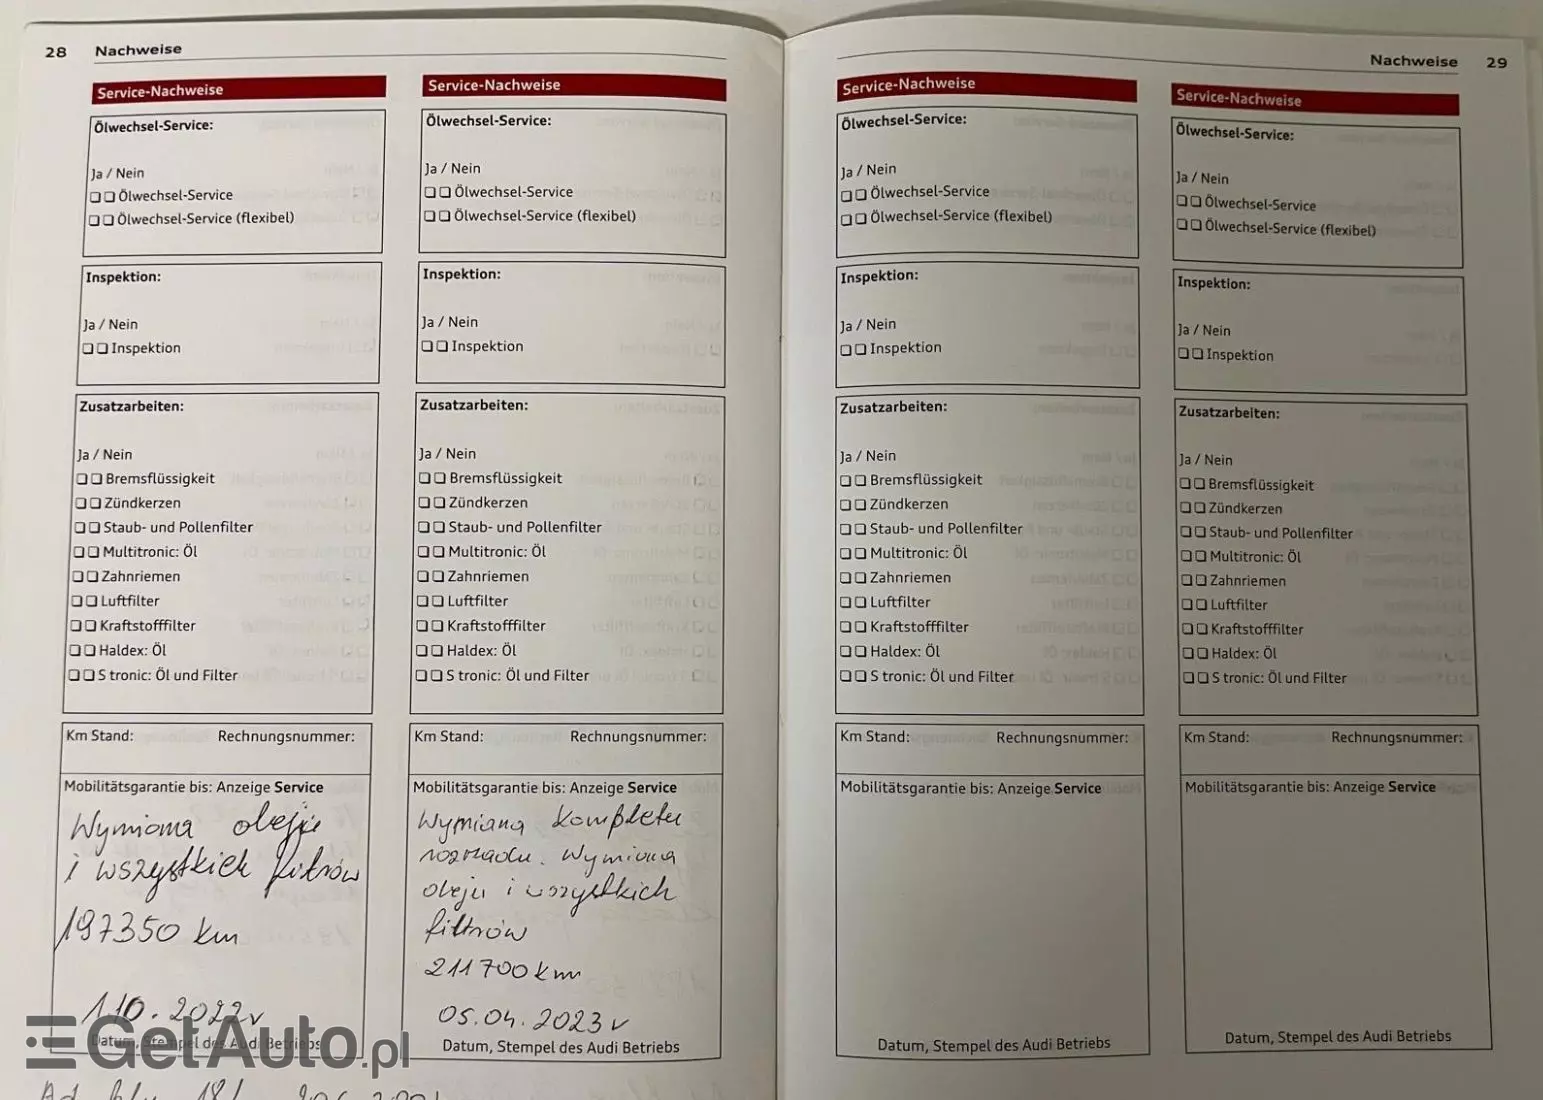 28 Nachweise
Service-Nachweise
Ölwechsel-Service:
Ja / Nein
Ölwechsel-Service
Ölwechsel-Service (flexibel)
Inspektion:
Ja / Nein
Inspektion
Zusatzarbeiten:
Ja / Nein
Bremsflüssigkeit
Zündkerzen
Staub- und Pollenfilter
Multitronic: Öl
Zahnriemen
Luftfilter
Kraftstofffilter
Haldex: Öl
S tronic: Öl und Filter
Km Stand: Rechnungsnummer:
Mobilitätsgarantie bis: Anzeige Service
Wymiana oleju
i wszystkich filtrów
197350 km
1.10.2022r
Datum, Stempel des Audi Betriebs
Service-Nachweise
Ölwechsel-Service:
Ja / Nein
Ölwechsel-Service
Ölwechsel-Service (flexibel)
Inspektion:
Ja / Nein
Inspektion
Zusatzarbeiten:
Ja / Nein
Bremsflüssigkeit
Zündkerzen
Staub- und Pollenfilter
Multitronic: Öl
Zahnriemen
Luftfilter
Kraftstofffilter
Haldex: Öl
S tronic: Öl und Filter
Km Stand: Rechnungsnummer:
Mobilitätsgarantie bis: Anzeige Service
Wymiana kompletu
rozrządu. Wymiana
oleju i wszystkich
filtrów
211700 km
05.04.2023 r
Datum, Stempel des Audi Betriebs
Nachweise 29
Service-Nachweise
Ölwechsel-Service:
Ja / Nein
Ölwechsel-Service
Ölwechsel-Service (flexibel)
Inspektion:
Ja / Nein
Inspektion
Zusatzarbeiten:
Ja / Nein
Bremsflüssigkeit
Zündkerzen
Staub- und Pollenfilter
Multitronic: Öl
Zahnriemen
Luftfilter
Kraftstofffilter
Haldex: Öl
S tronic: Öl und Filter
Km Stand: Rechnungsnummer:
Mobilitätsgarantie bis: Anzeige Service
Datum, Stempel des Audi Betriebs
Service-Nachweise
Ölwechsel-Service:
Ja / Nein
Ölwechsel-Service
Ölwechsel-Service (flexibel)
Inspektion:
Ja / Nein
Inspektion
Zusatzarbeiten:
Ja / Nein
Bremsflüssigkeit
Zündkerzen
Staub- und Pollenfilter
Multitronic: Öl
Zahnriemen
Luftfilter
Kraftstofffilter
Haldex: Öl
S tronic: Öl und Filter
Km Stand: Rechnungsnummer:
Mobilitätsgarantie bis: Anzeige Service
Datum, Stempel des Audi Betriebs
GetAuto.pl